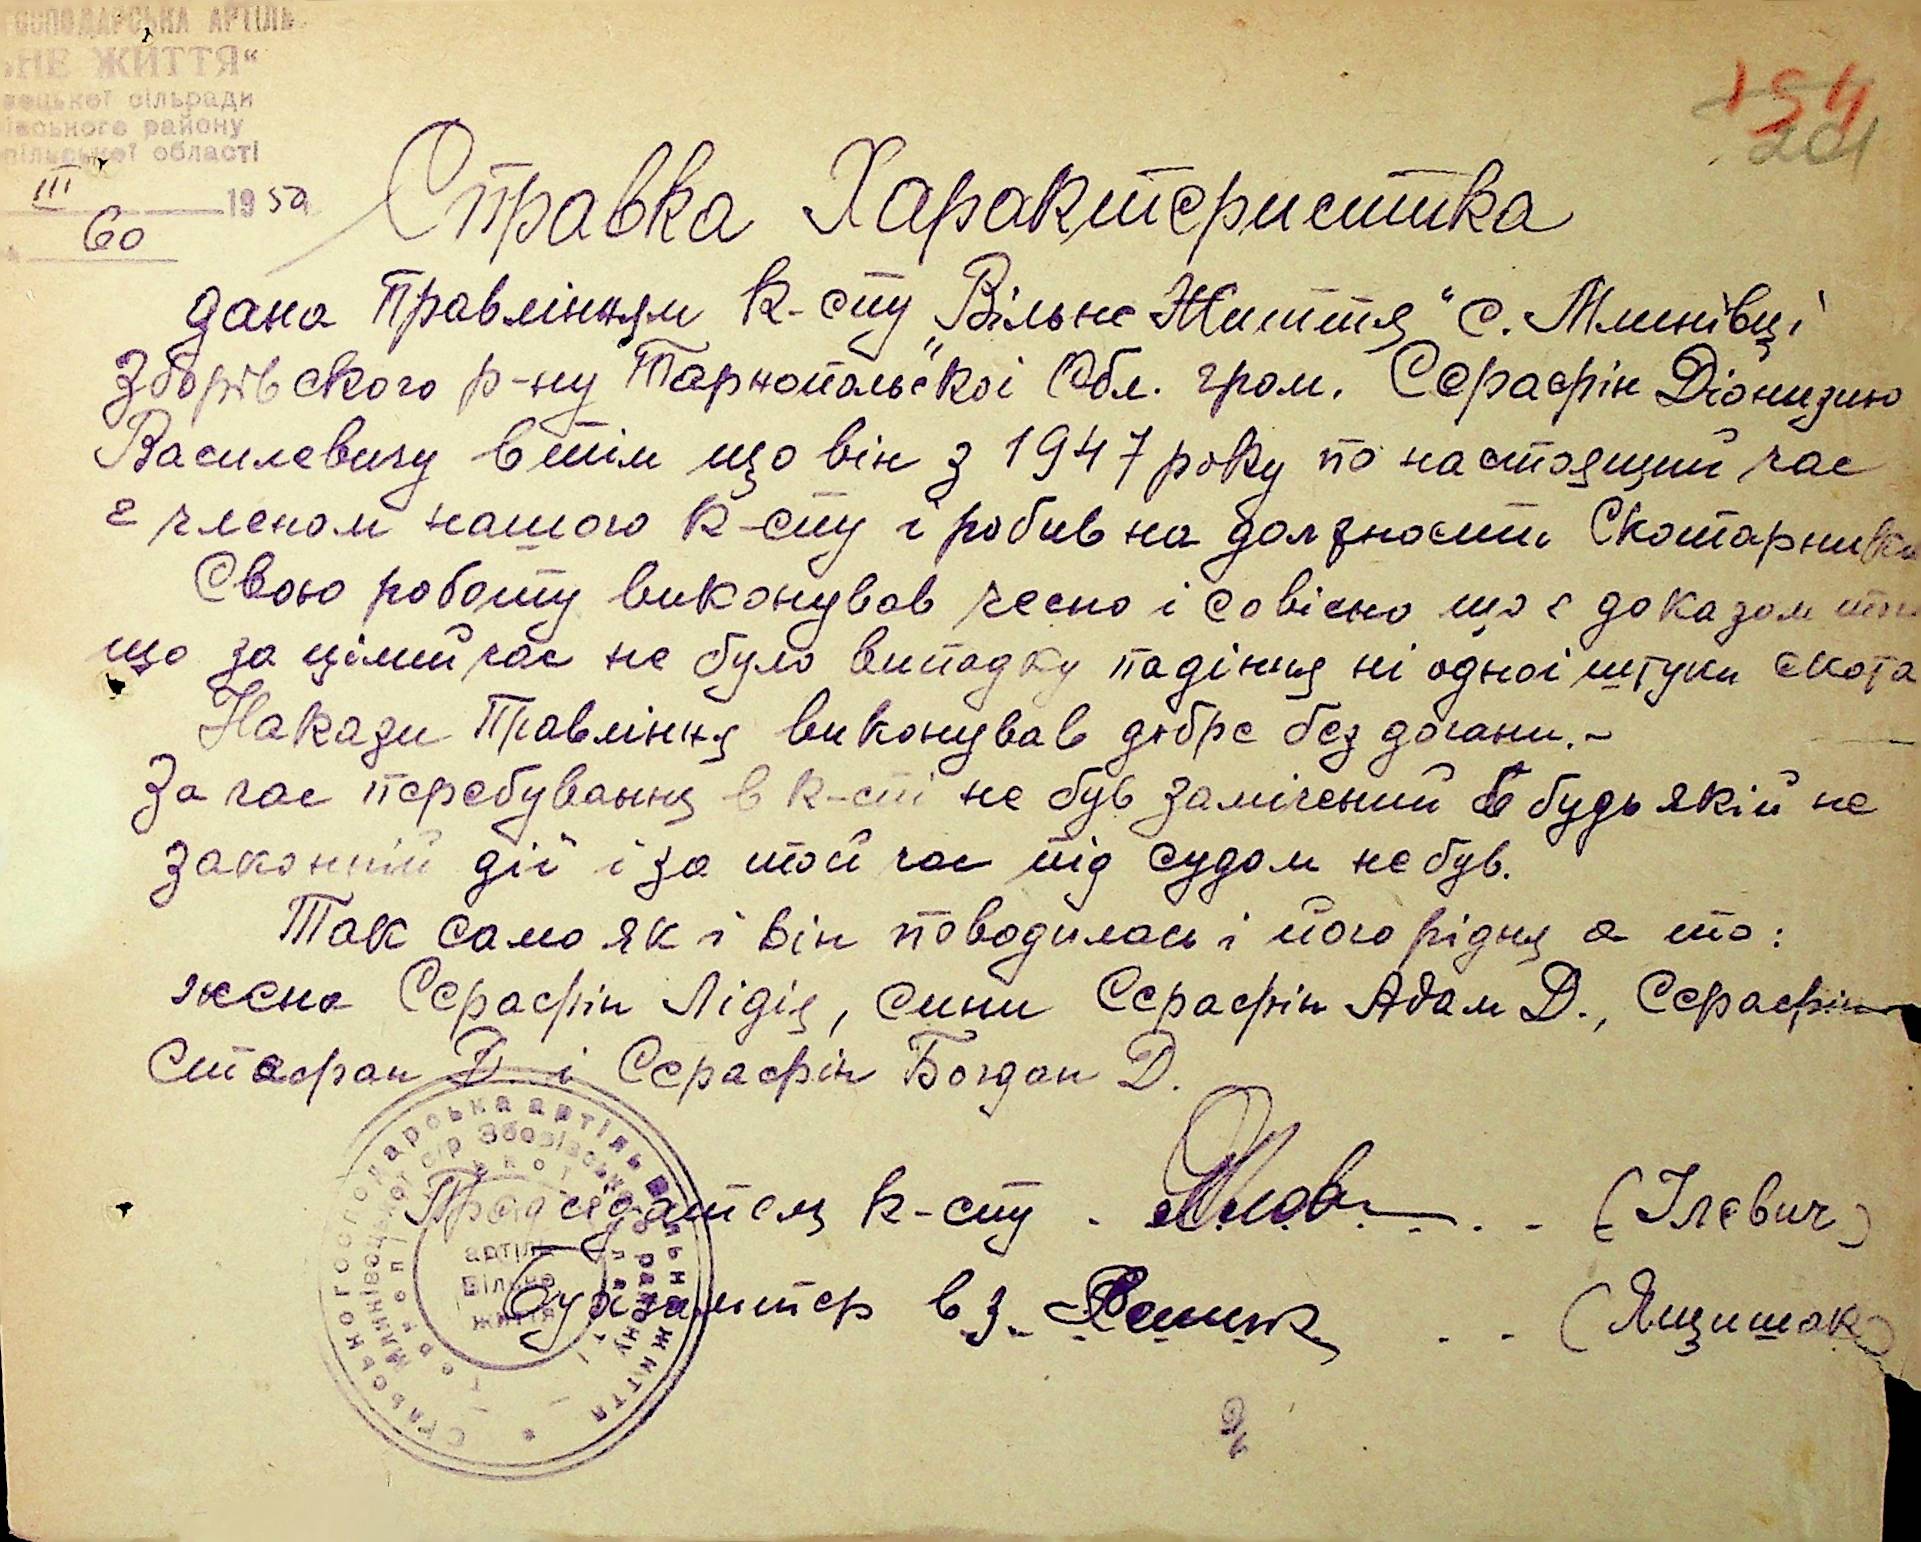 ГОСПОДАРСЬКА АРТІЛЬ
НЕ ЖИТТЯ"
вецької сільради
івського району
пільської області
III 1950
60
154
201
Справка Характеристика
дана Правлінням к-спу „Вільне Життя" с. Млинівці
Зборівского р-ну Тарнопольскої Обл. гром. Серафін Діонизию
Василевичу втім що він з 1947 року по настоящий час
є членом нашого к-спу і робив на должности Скотарника
Свою роботу виконував чесно і совісно що є доказом того
що за цілий час не було випадку падіння ні одної штуки скота
Накази Правління виконував добре без догани.-
За час перебування в к-сті не був замічений в будь якій не
законній дії і за той час під судом не був.
Так само як і він поводилась і його рідня а то:
жена Серафін Лідія, сини Серафін Адам Д., Серафін
Стефан Д. і Серафін Богдан Д.
Председатель к-спу (Ілєвич)
Бухгалтер вз. (Ящишак)
Сільськогосподарська артіль Вільне життя
Млинівецької с/р Зборівського району
артіль
Вільне
життя